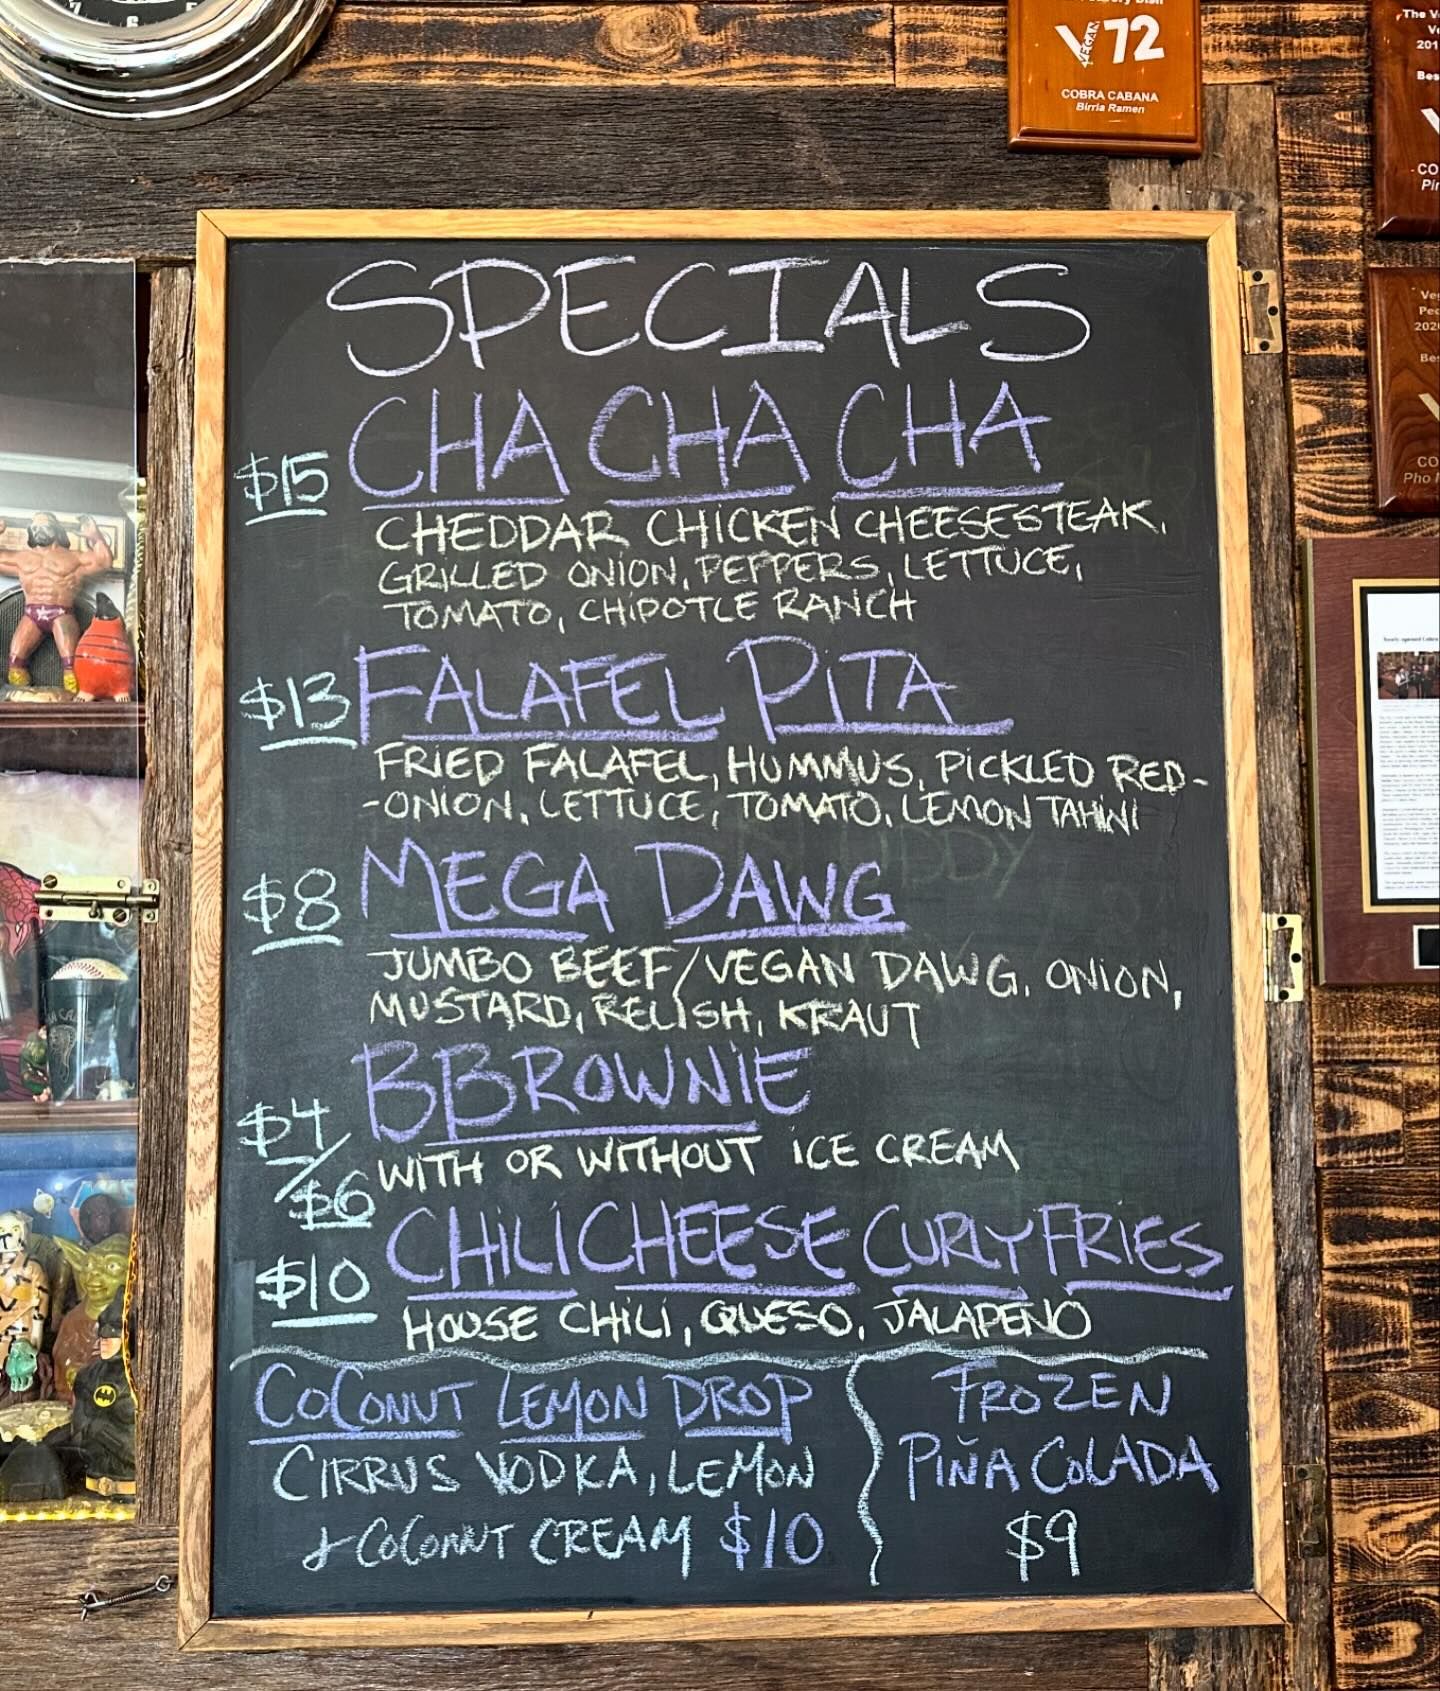 7 6 5
V VEGAN 72
COBRA CABANA
Birria Ramen
SPECIALS
$15 CHA CHA CHA
CHEDDAR CHICKEN CHEESESTEAK,
GRILLED ONION, PEPPERS, LETTUCE,
TOMATO, CHIPOTLE RANCH
$13 FALAFEL PITA
FRIED FALAFEL, HUMMUS, PICKLED RED-
-ONION, LETTUCE, TOMATO, LEMON TAHINI
$8 MEGA DAWG
JUMBO BEEF/VEGAN DAWG, ONION,
MUSTARD, RELISH, KRAUT
BBROWNIE
$4/$6 WITH OR WITHOUT ICE CREAM
$10 CHILI CHEESE CURLY FRIES
HOUSE CHILI, QUESO, JALAPENO
COCONUT LEMON DROP
CIRRUS VODKA, LEMON
& COCONUT CREAM $10
FROZEN
PIÑA COLADA
$9